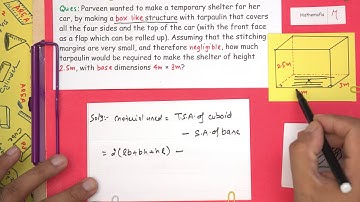 Ques: Parveen wanted to make a temporary shelter for her
car, by making a box like structure with tarpaulin that covers
all the four sides and the top of the car (with the front face
as a flap which can be rolled up). Assuming that the stitching
margins are very small, and therefore negligible, how much
tarpaulin would be required to make the shelter of height
2.5m, with base dimensions 4m × 3m?
Mathematics
2.5m
3m
m
Soln:- material used = T.S.A. of cuboid
- S.A. of base
= 2(lb+bh+hl) -